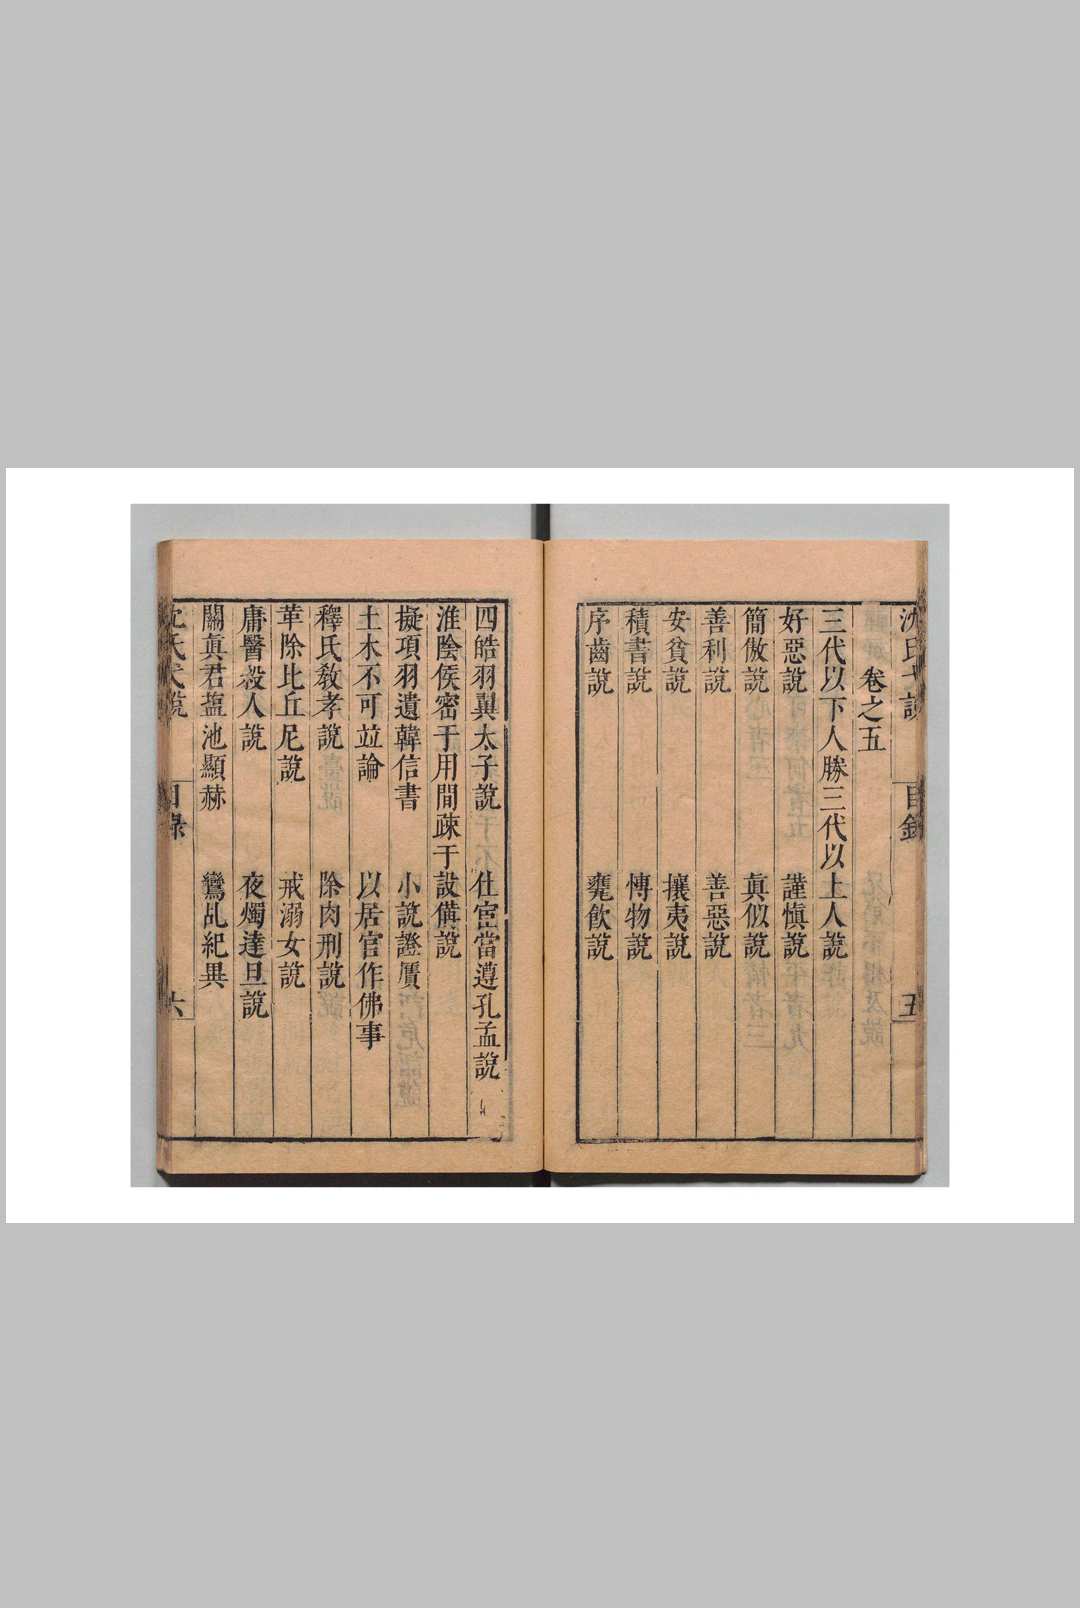 沈氏弋說 目錄 五
卷之五
三代以下人勝三代以上人說
好惡說 謹愼說
簡傲說 眞似說
善利說 善惡說
安貧說 攘夷說
積書說 愽物說
序齒說 甕飲說
四皓羽翼太子說 仕宦當遵孔孟說
淮陰侯密于用間疎于設備說
擬項羽遺韓信書 小說證贋
土木不可竝論 以居官作佛事
釋氏敎孝說 除肉刑說
革除比丘尼說 戒溺女說
庸醫殺人說 夜燭達旦說
關眞君藍池顯赫 鸞乩紀異
沈氏弋說 目錄 六